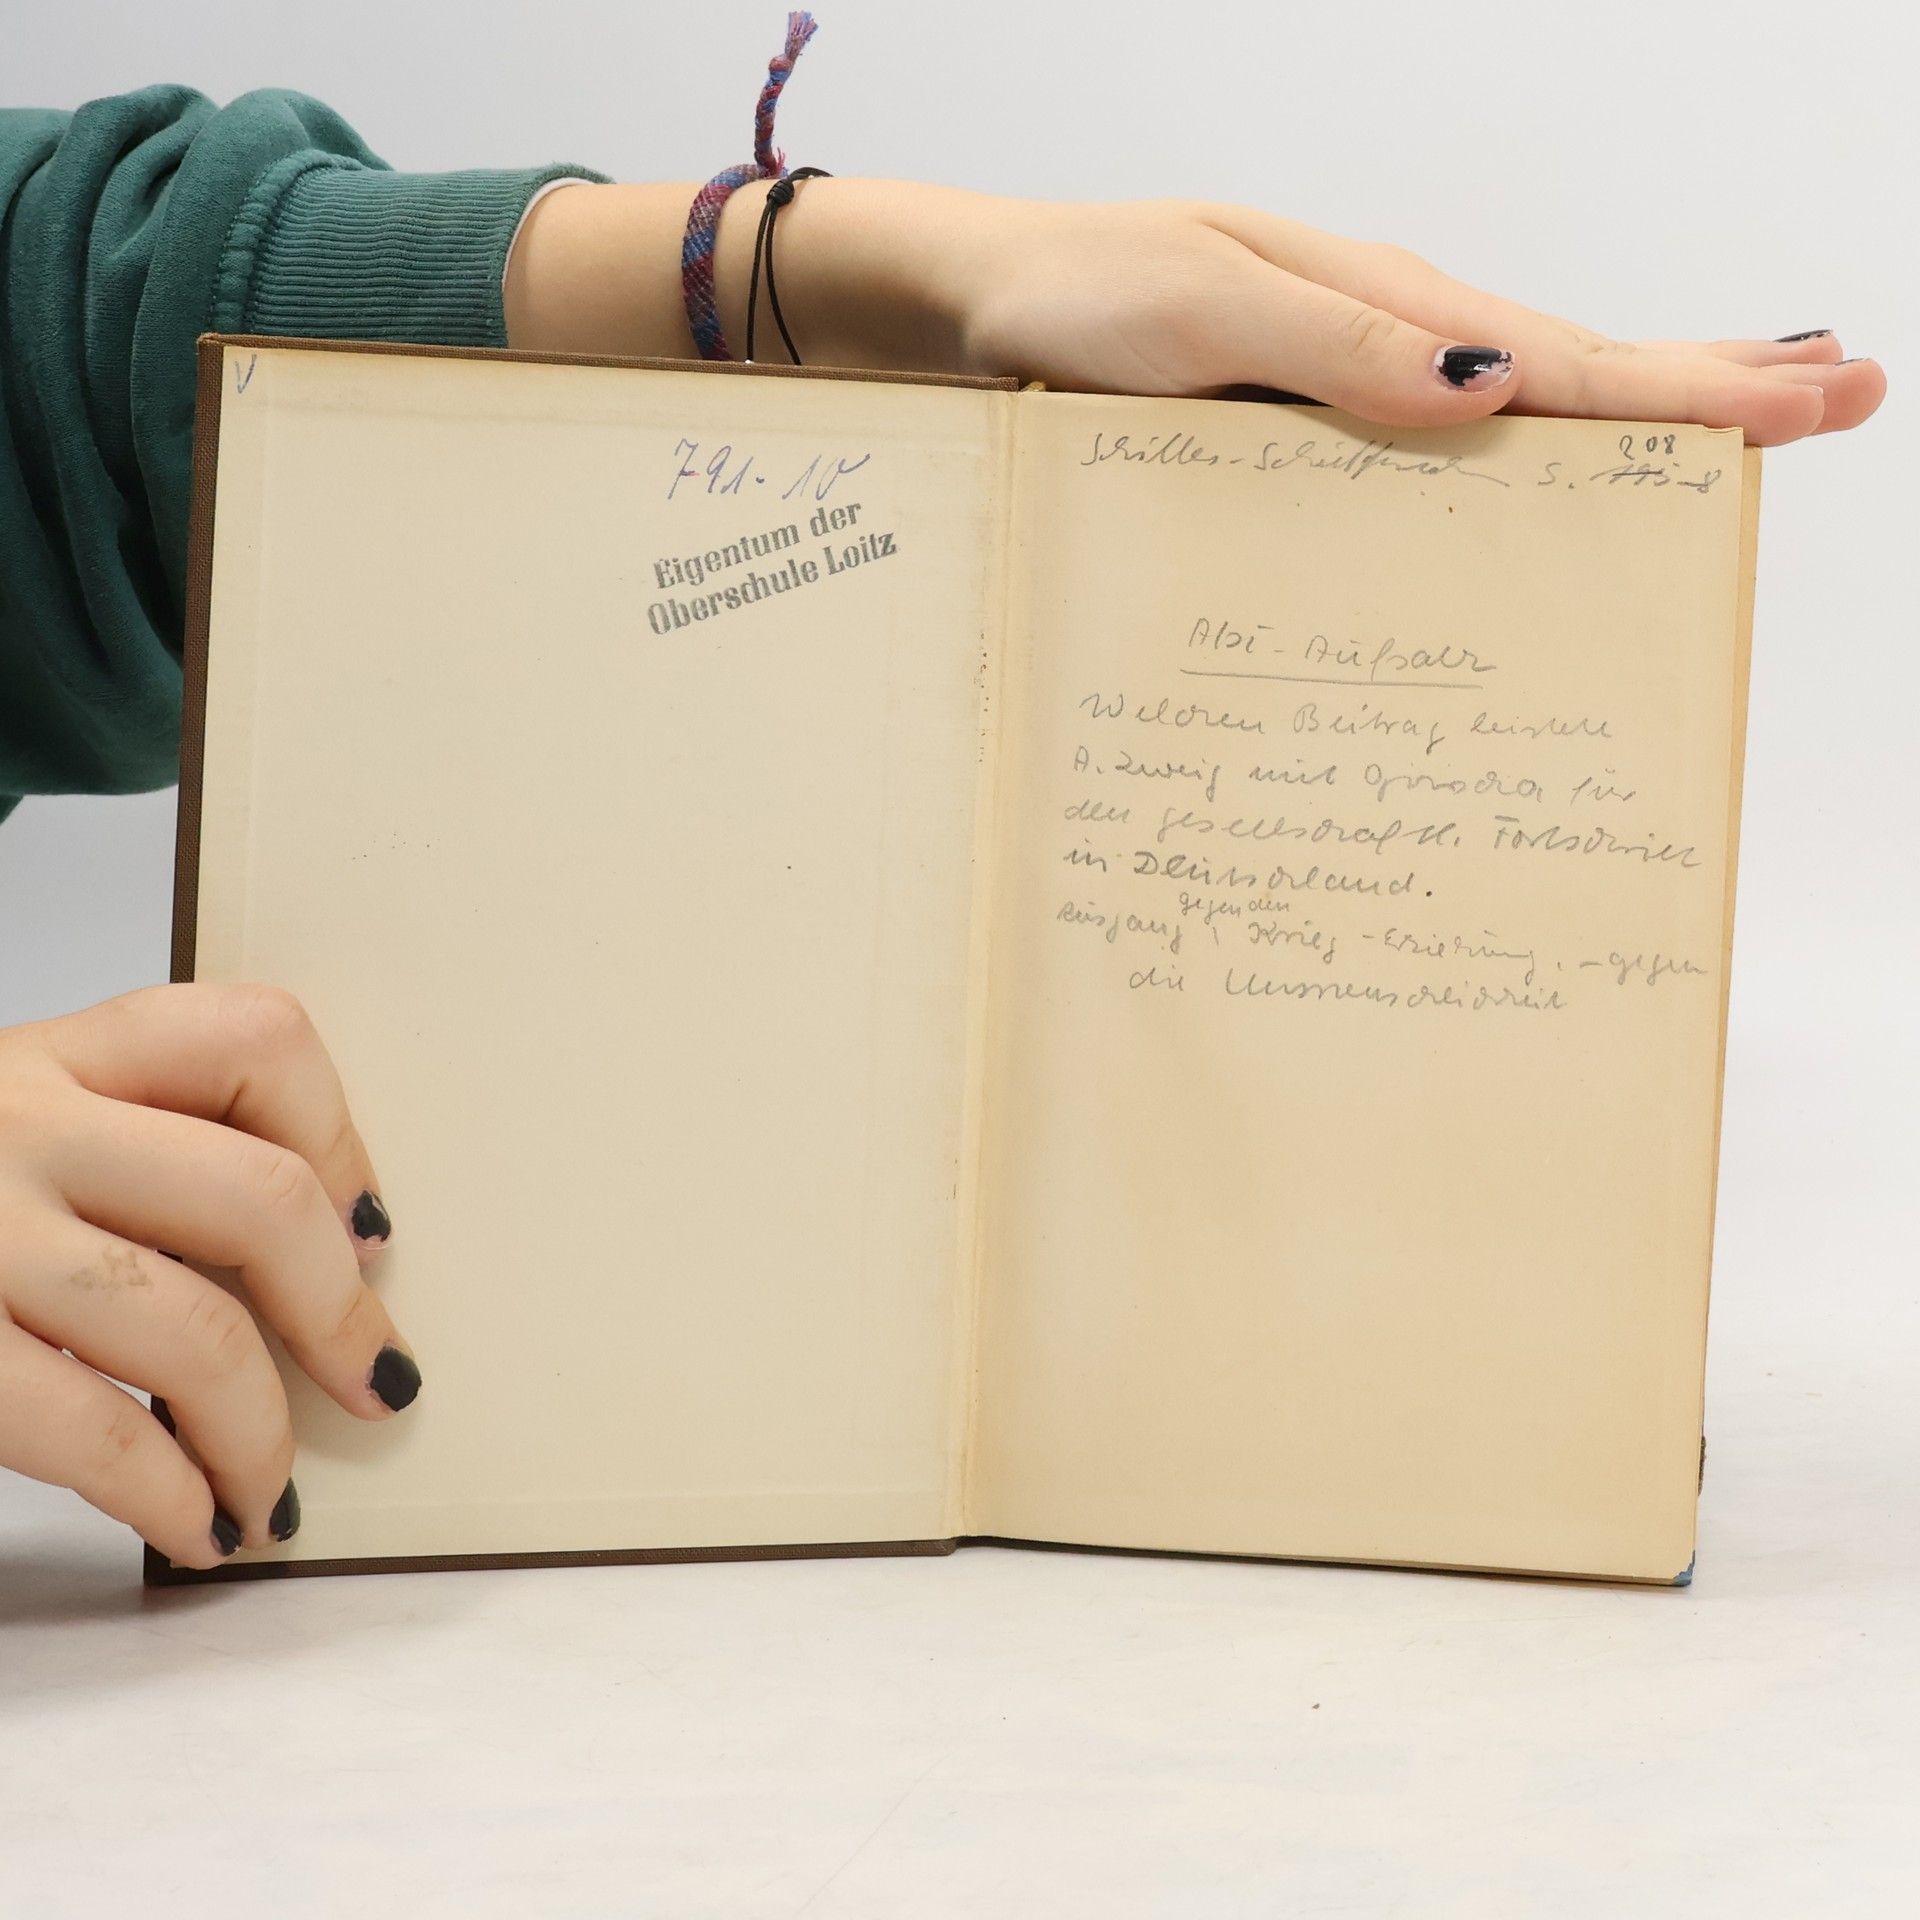 V
791.-10
Eigentum der
Oberschule Loitz
208
Schiller- S. 195-8
Abi-Aufsatz
Welchen Beitrag leistete
A. Zweig mit Grischa für
den gesellschaftl. Fortschritt
in Deutschland.
gegen den
Krieg -Erziehung. -gegen
die Unmenschlichkeit